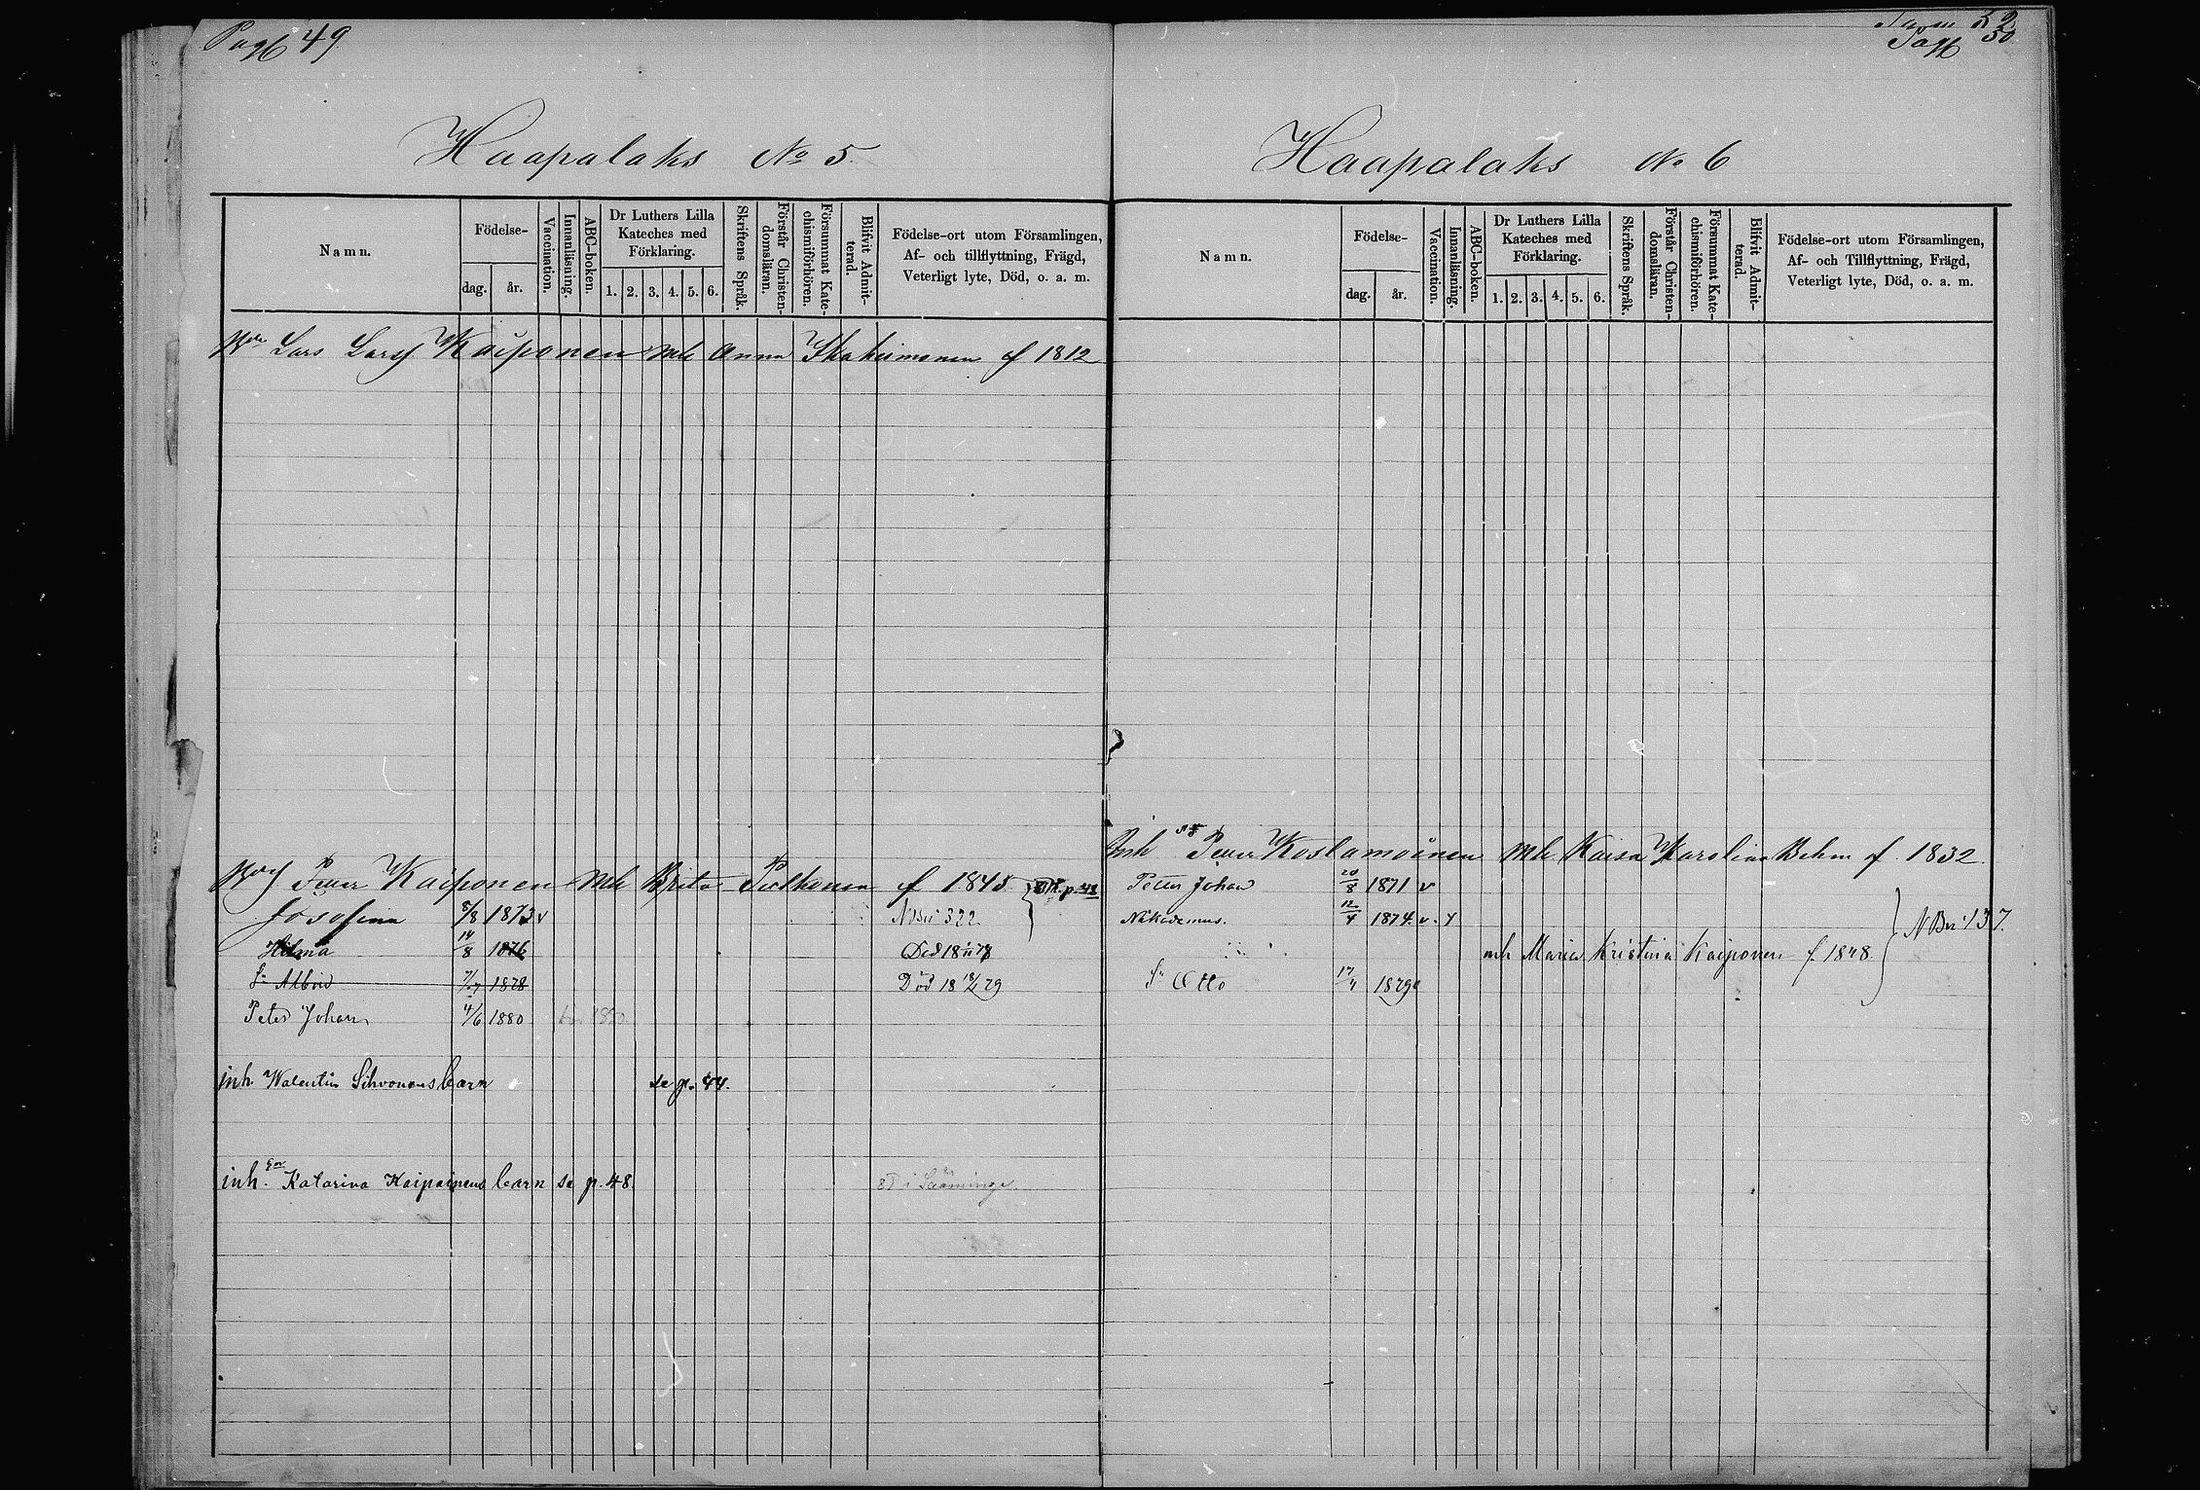 Pag 49
Haapalaks No 5.
Namn.
Födelse-
dag.
år.
Vaccination.
Innanläsning.
ABC-boken.
Dr Luthers Lilla
Kateches med
Förklaring.
1. 2. 3. 4. 5. 6.
Skriftens Språk.
Förstår Christen-
domsläran.
Försummat Kate-
chismiförhören.
Blifvit Admit-
terad.
Födelse-ort utom Församlingen,
Af- och tillflyttning, Frägd,
Veterligt lyte, Död, o. a. m.
Lars Larss Kaiponen mh Anna f 1812
Petter Kaiponen mh Brita f 1845 p. 48
Josefina 8/8 1873 v NBu 322
Hilma 14/8 1876 Död 18 78
Sn Albin 1878 Död 18 79
Peter Johan 4/6 1880
inh Walentin Sihvonens barn se p. 44.
inh. Katarina Kaipainens barn se p. 48. i Sääminge.
Pag 50
Haapalaks No 6
Namn.
Födelse-
dag.
år.
Vaccination.
Innanläsning.
ABC-boken.
Dr Luthers Lilla
Kateches med
Förklaring.
1. 2. 3. 4. 5. 6.
Skriftens Språk.
Förstår Christen-
domsläran.
Försummat Kate-
chismiförhören.
Blifvit Admit-
terad.
Födelse-ort utom Församlingen,
Af- och Tillflyttning, Frägd,
Veterligt lyte, Död, o. a. m.
Inh Petter Koslamoinen mh Kaisa Karolina Behm f. 1832
Petter Johan 20/8 1871 v
Nikodemus. 12/4 1874. v. y NBu 137.
mh Maria Kristina Kaiponen f. 1848
Sn Otto 17/4 1879